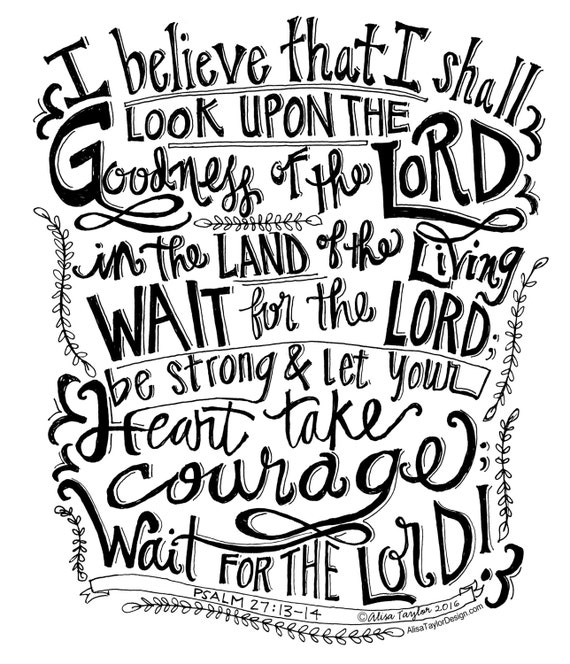 I believe that I shall
LOOK UPON THE
Goodness of the LORD
in the LAND of the Living
WAIT for the LORD;
be strong & let your
Heart take
courage;
Wait FOR THE LORD!
PSALM 27:13-14
©Alisa Taylor 2016
AlisaTaylorDesign.com